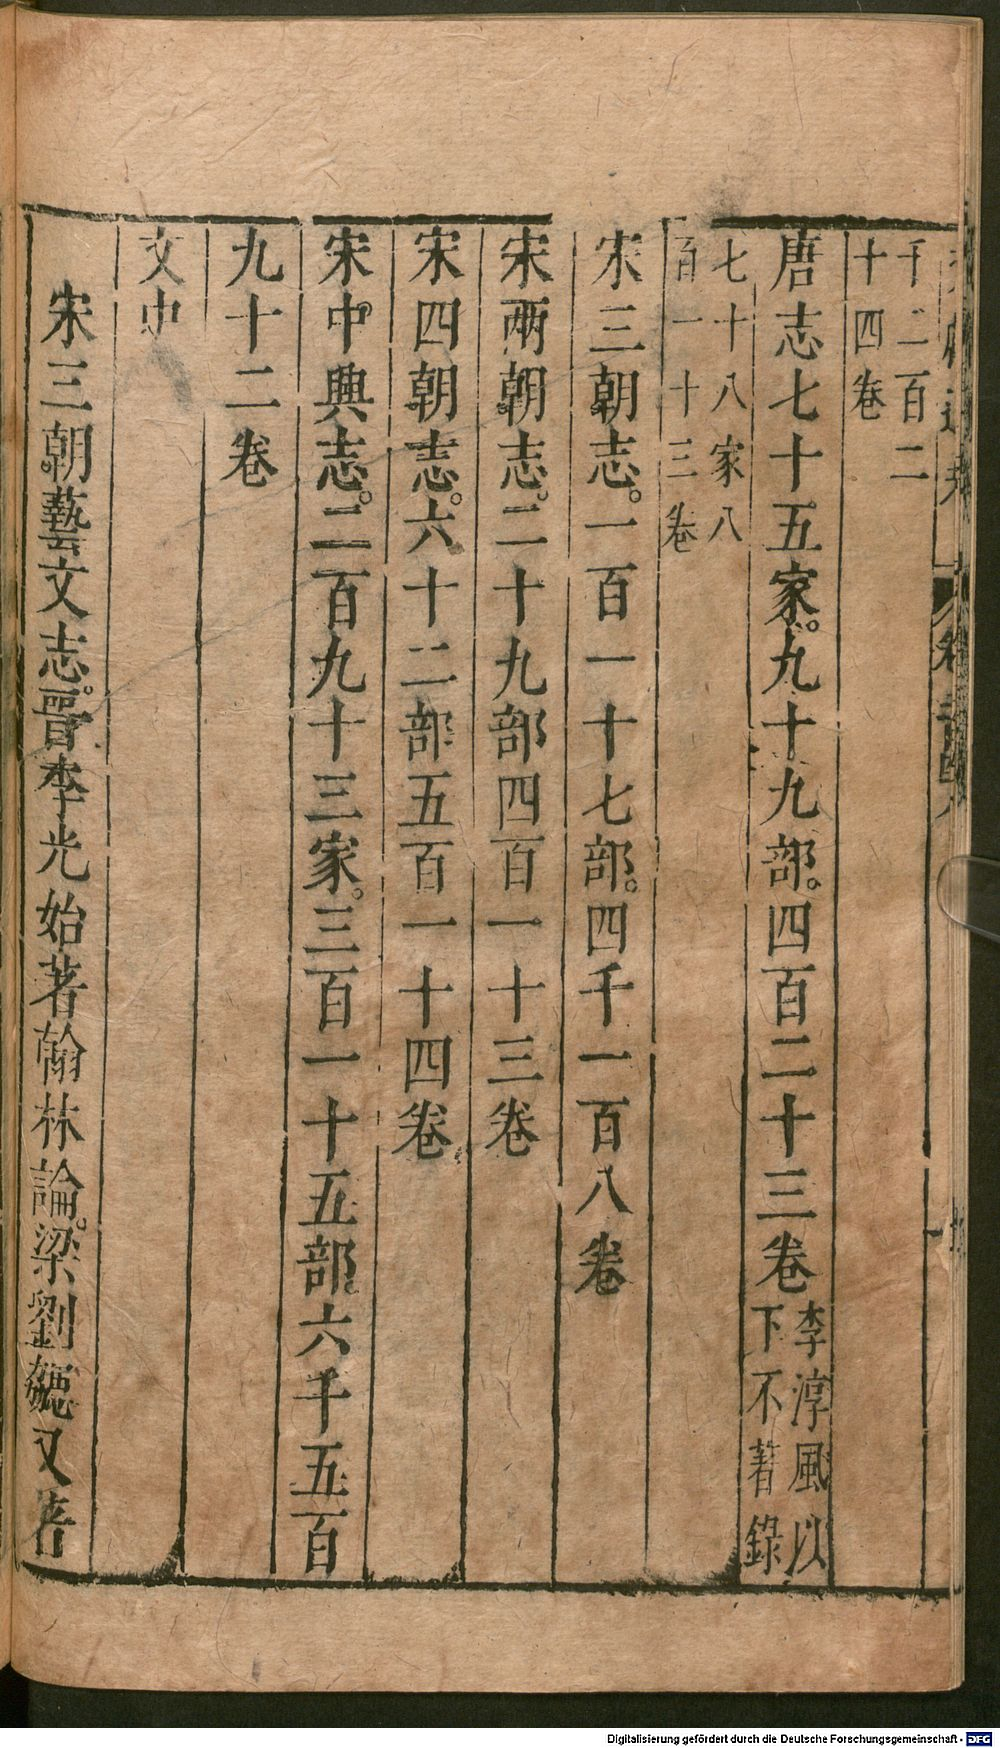 千二百二
十四卷
唐志七十五家。九十九部。四百二十三卷李淳風以
下不著錄
七十八家八
百一十三卷
宋三朝志。一百一十七部。四千一百八卷
宋兩朝志。二十九部四百一十三卷
宋四朝志。六十二部五百一十四卷
宋中興志。二百九十三家。三百一十五部。六千五百
九十二卷
文史
宋三朝藝文志。晉李光始著翰林論。梁劉勰又著
Digitalisierung gefördert durch die Deutsche Forschungsgemeinschaft - DFG